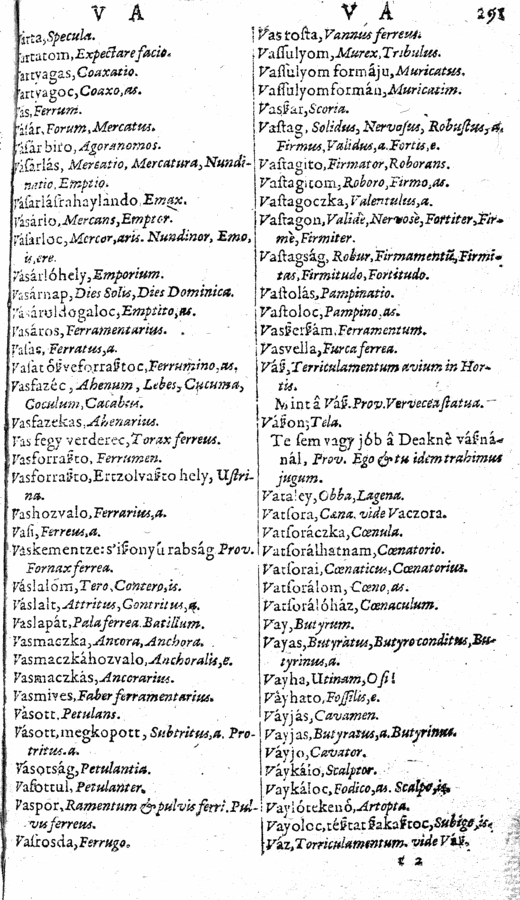 V A
V A 298
Varta, Specula.
Vartatom, Expectare facio.
Vartyagas, Coaxatio.
Vartyagoc, Coaxo, as.
Vas, Ferrum.
Vásár, Forum, Mercatus.
Vásár biro, Agoranomos.
Vásárlás, Mereatio, Mercatura, Nundi-
natio, Emptio.
Vásárlásrahaylando Emax.
Vásárlo, Mercans, Emptor.
Vásárloc, Mercor, aris. Nundinor, Emo,
is, ere.
Vásárlóhely, Emporium.
Vasárnap, Dies Solis, Dies Dominica.
Vásároldogaloc, Emptito, as.
Vasáros, Ferramentarius.
Vasas, Ferratus, a.
Vasat óßveforraßtoc, Ferrumino, as.
Vasfazéc, Ahenum, Lebes, Cucuma,
Coculum, Cacabus.
Vasfazekas, Ahenarius.
Vas fegy verderec, Torax ferreus.
Vasforraßto, Ferrumen.
Vasforraßto, Ertzolvaßto hely, Ustri-
na.
Vashozvalo, Ferrarius, a.
Vasi, Ferreus, a.
Vaskementze: s'ißonyű rabság Prov.
Fornax ferrea.
Váslalóm, Tero, Contero, is.
Váslalt, Attritus, Contritus, a.
Vaslapát, Pala ferrea. Batillum.
Vasmaczka, Ancora, Anchora.
Vasmaczkáhozvalo, Anchoralis, e.
Vasmaczkás, Ancorarius.
Vasmives, Faber ferramentarius.
Vásott, Petulans.
Vásott, megkopott, Subtritus, a. Pro-
tritus. a.
Vásotság, Petulantia.
Vasottul, Petulanter.
Vaspor, Ramentum & pulvis ferri. Pul-
vis ferreus.
Vasrosda, Ferrugo.
Vas tosta, Vannus ferreus.
Vassulyom, Murex, Tribulus.
Vassulyom formáju, Muricatus.
Vassulyomformán, Muricatim.
Vasßar, Scoria.
Vastag, Solidus, Nervosus, Robustus, a,
Firmus, Validus, a. Fortis, e.
Vastagito, Firmator, Roborans.
Vastagitom, Roboro, Firmo, as.
Vastagoczka, Valentulus, a.
Vastagon, Validè, Nervosè, Fortiter, Fir-
mè, Firmiter.
Vastagság, Robur, Firmamentũ, Firmi-
tas, Firmitudo, Fortitudo.
Vastolás, Pampinatio.
Vastoloc, Pampino, as.
Vasßerßám, Ferramentum.
Vasvella, Furca ferrea.
Váß, Terriculamentum avium in Hor-
tis.
Mint â Váß. Prov. Vervecea statua.
Váßon, Tela.
Te sem vagy jób â Deaknè váßná-
nál, Prov. Ego & tu idem trahimus
jugum.
Vataley, Obba, Lagena.
Vatsora, Cæna. vide Vaczora.
Vatsoráczka, Cœnula.
Vatsorálhatnam, Cœnatorio.
Vatsorai, Cœnaticus, Cœnatorius.
Vatsorálom, Cœno, as.
Vatsorálóház, Cœnaculum.
Vay, Butyrum.
Vayas, Butyratus, Butyro conditus, Bu-
tyrinus, a.
Vayha, Utinam, O si!
Vàyhato, Fossilis, e.
Váyjás, Cavamen.
Vayjas, Butyratus, a. Butyrinus.
Váyjo, Cavator.
Váykálo, Scalptor.
Vaykáloc, Fodico, as. Scalpo, is.
Vaylótekenő, Artopta.
Vayoloc, téßtat ßakaßtoc, Subigo, is.
Váz, Torriculamentum. vide Váß.
t 2